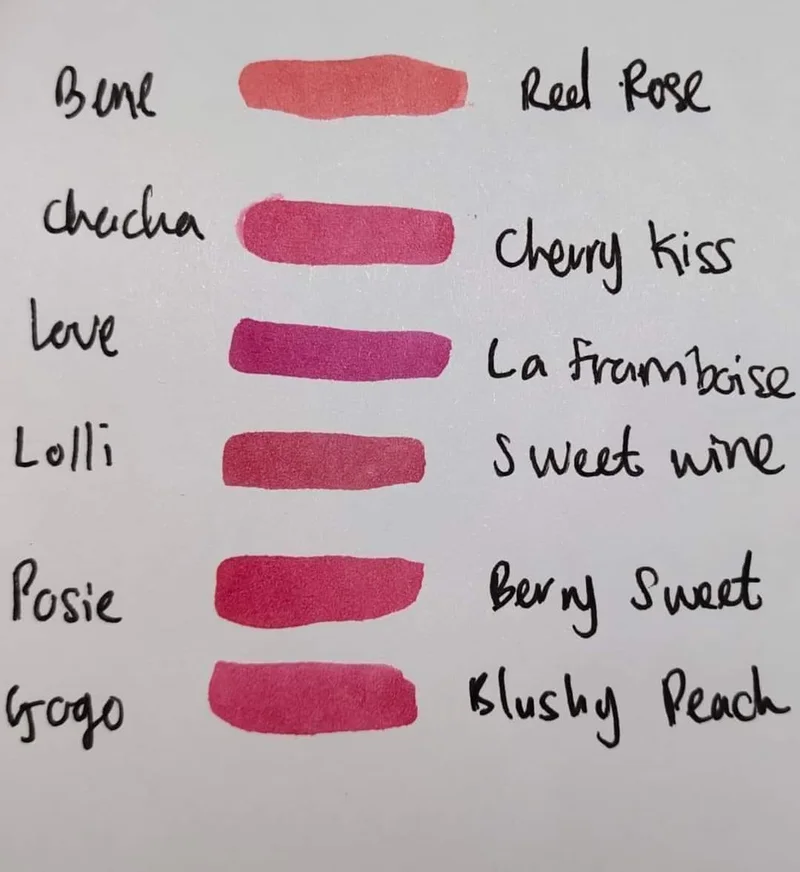 Bene Red Rose
Chacha Cherry Kiss
Love La framboise
Lolli Sweet wine
Posie Berry Sweet
Gogo Blushy Peach